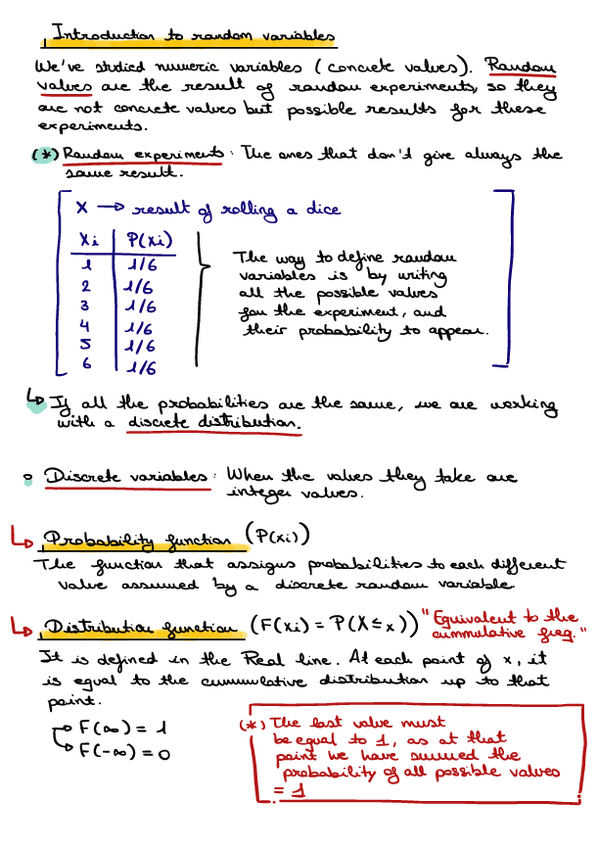 Introduction to random variables
We've studied numeric variables (concrete values). Random
values are the result of random experiments, so they
are not concrete values but possible results for these
experiments.
(*) Random experiments: The ones that don't give always the
same result.
X → result of rolling a dice
Xi P(xi)
1 1/6
2 1/6
3 1/6
4 1/6
5 1/6
6 1/6
The way to define random
variables is by writing
all the possible values
for the experiment, and
their probability to appear.
↳ If all the probabilities are the same, we are working
with a discrete distribution.
• Discrete variables: When the values they take are
integer values.
↳ Probability function (P(xi))
The function that assigns probabilities to each different
value assumed by a discrete random variable.
↳ Distribution function (F(xi) = P(X≤x)) "Equivalent to the
cummulative freq."
It is defined in the Real line. At each point of x, it
is equal to the cummulative distribution up to that
point.
F(∞) = 1
F(-∞) = 0
(*) The last value must
be equal to 1, as at that
point we have summed the
probability of all possible values
= 1